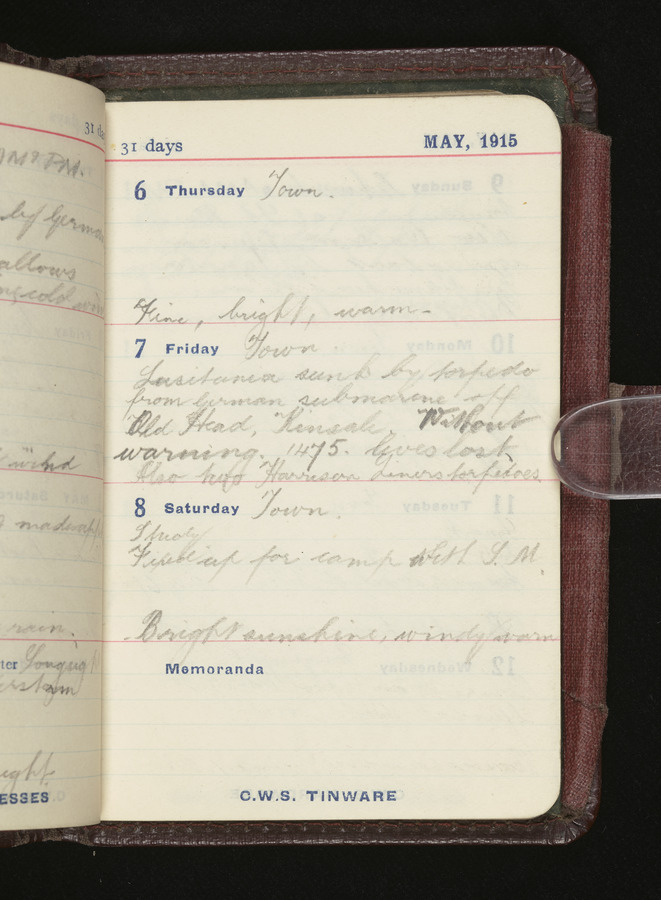 31 da
by German
allows
cold win
wind
rain.
ter
ight.
ESSES
31 days MAY, 1915
6 Thursday Town.
Fine, bright, warm.
7 Friday Town.
Lusitania sunk by torpedo
from German submarine off
Old Head, Kinsale. Without
warning. 1475. lives lost.
Also two Harrison Liners torpedoes.
8 Saturday Town.
Study
Fixed up for camp with S. M.
Bright sunshine, windy warm
Memoranda
C.W.S. TINWARE